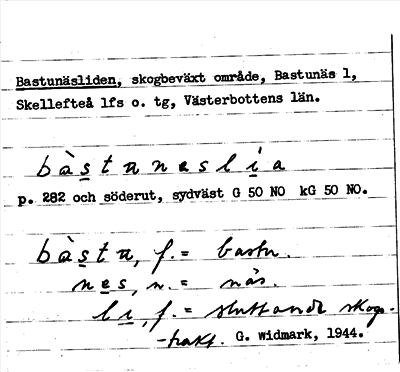 Bastunäsliden, skogbeväxt område, Bastunäs 1,
Skellefteå lfs o. tg, Västerbottens län.
bàstuneslia
p. 282 och söderut, sydväst G 50 NO kG 50 NO.
bàstu, f. = bastu.
nes, n. = näs.
li, f. = sluttande skog-
-trakt. G. Widmark, 1944.